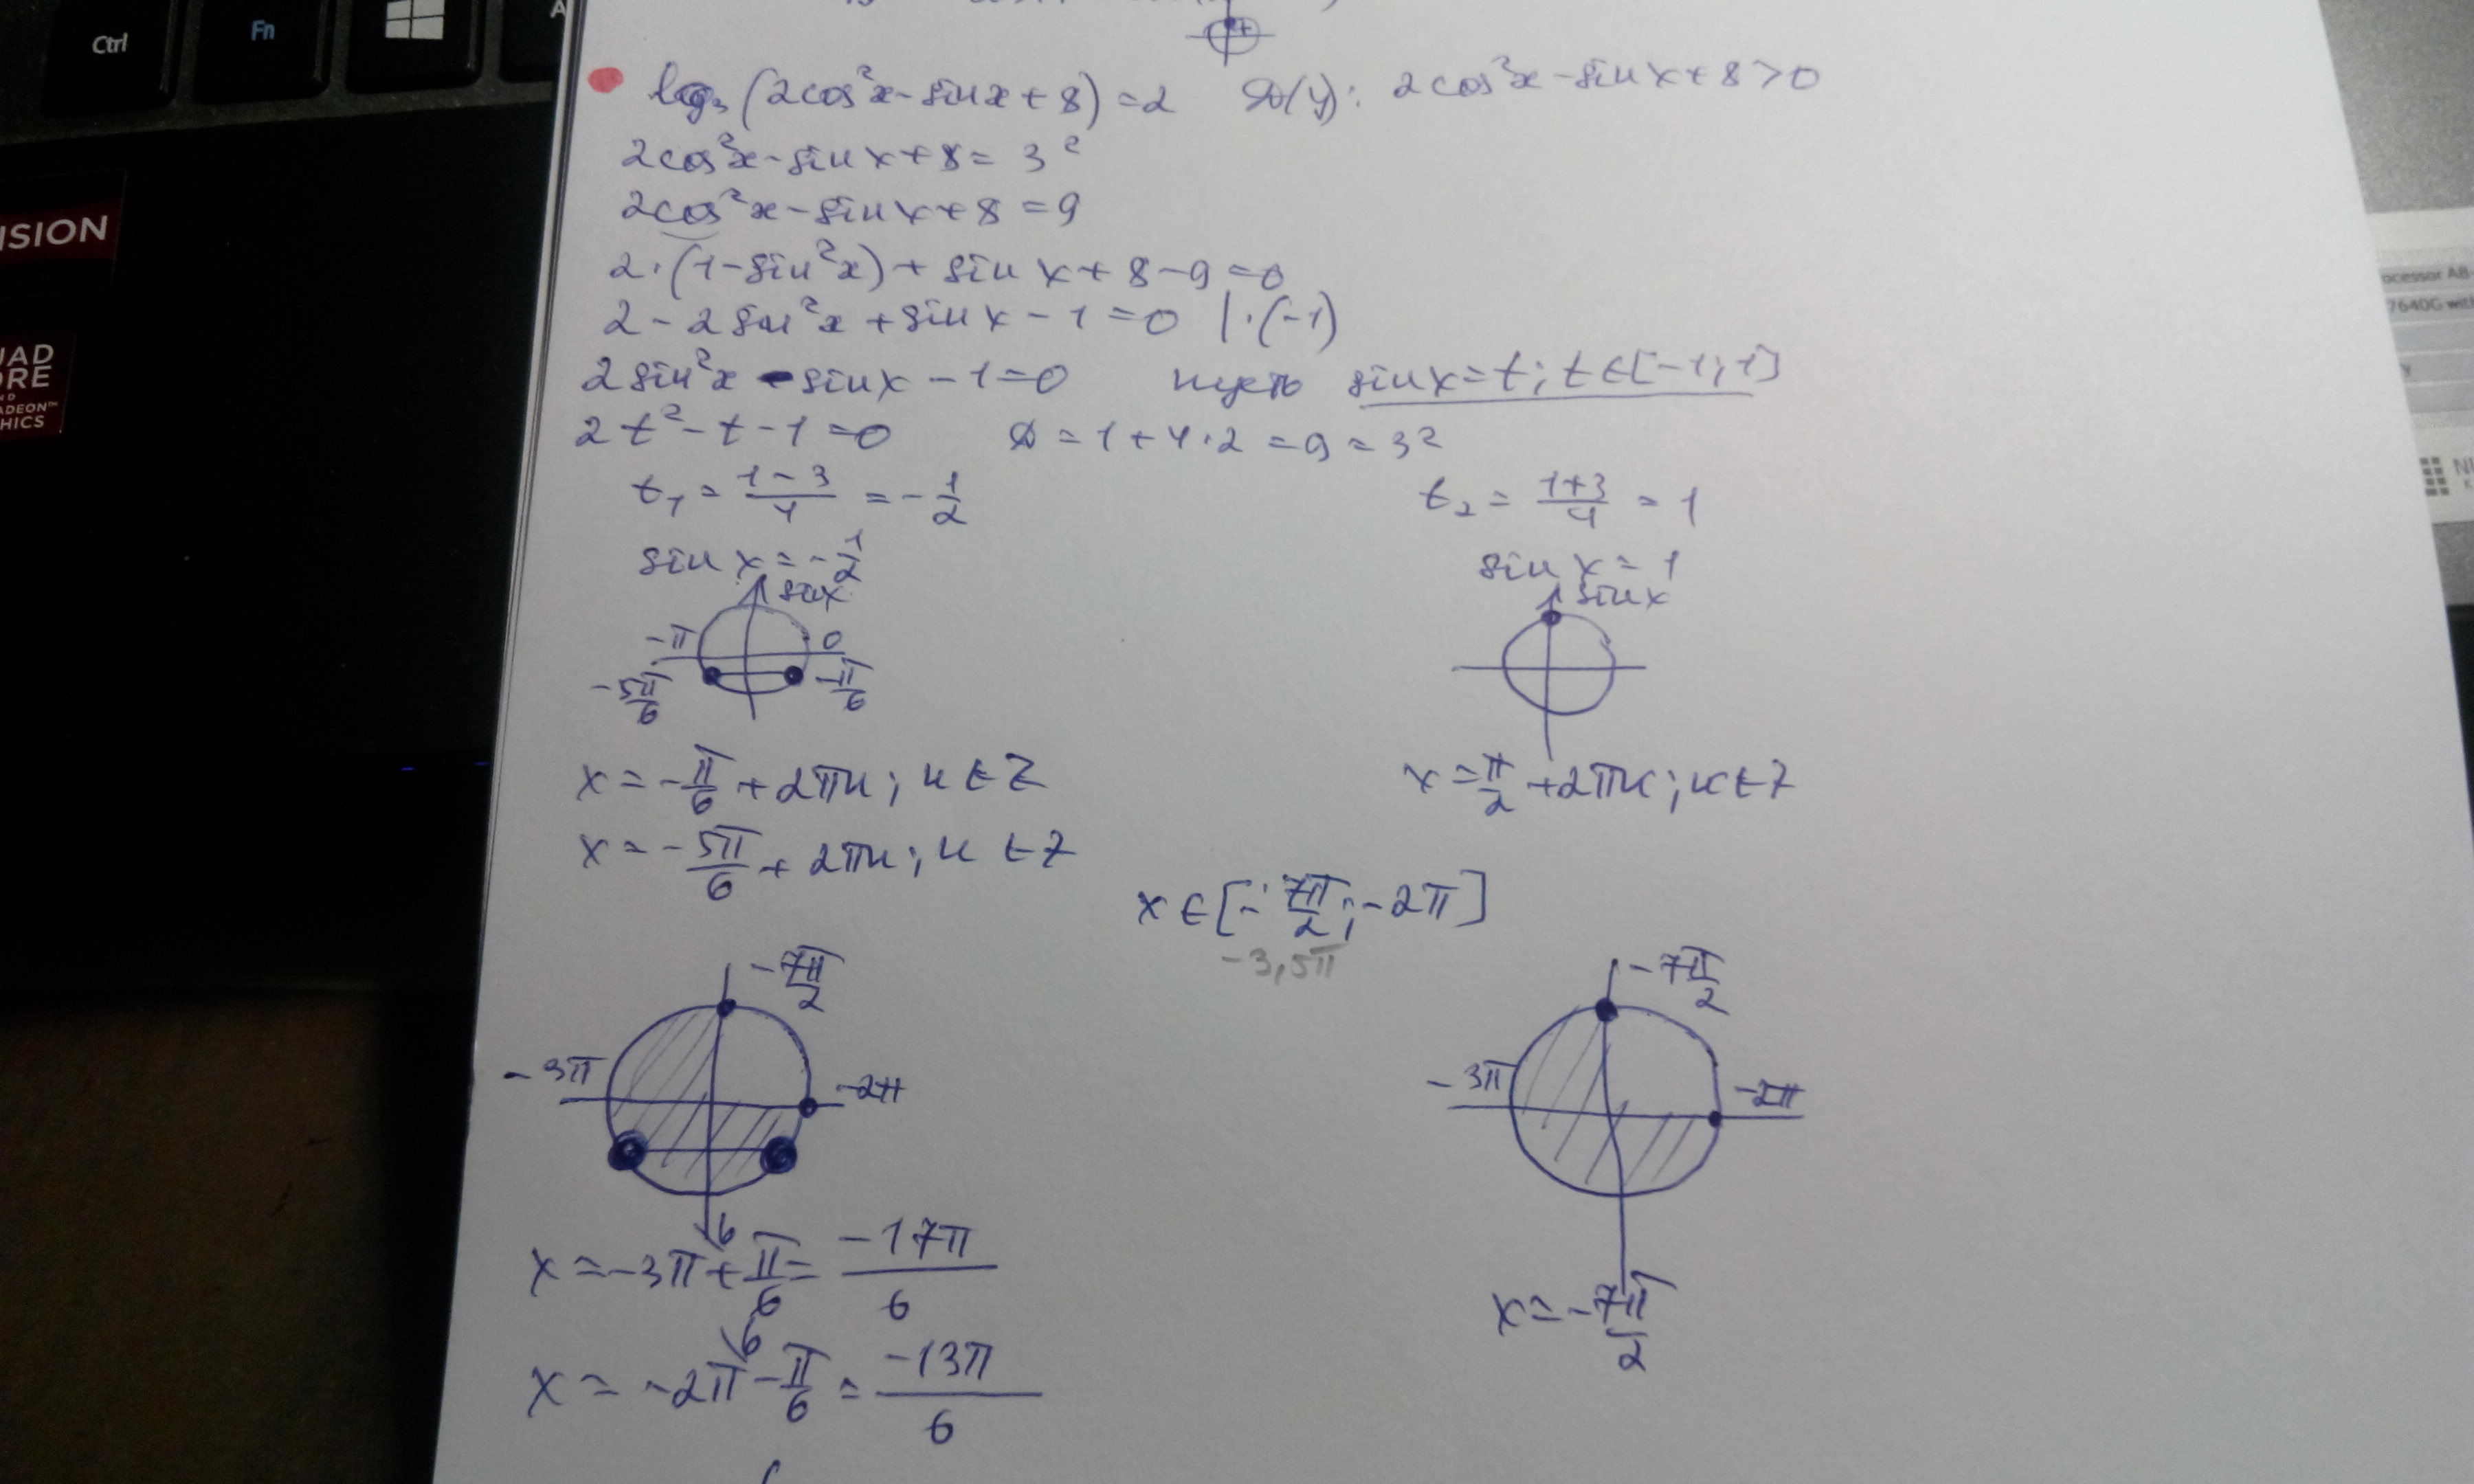 Ctrl
Fn
A
ISION
UAD
ORE
ND
ADEON™
HICS
ocessor A8-
7640G with
log₃ (2cos²x - sinx + 8) = 2 D(y): 2cos²x - sinx + 8 > 0
2cos²x - sinx + 8 = 3²
2cos²x - sinx + 8 = 9
2·(1 - sin²x) + sinx + 8 - 9 = 0
2 - 2sin²x + sinx - 1 = 0 |·(-1)
2sin²x - sinx - 1 = 0 пусть sinx = t; t ∈ [-1; 1]
2t² - t - 1 = 0 D = 1 + 4·2 = 9 = 3²
t₁ = (1-3)/4 = -1/2 t₂ = (1+3)/4 = 1
sin x = -1/2 sin x = 1
sinx sinx
-π 0
-5π/6 -π/6
x = -π/6 + 2πn; n ∈ Z x = π/2 + 2πk; k ∈ Z
x = -5π/6 + 2πn; n ∈ Z
x ∈ [-7π/2; -2π]
-3,5π
-7π/2 -7π/2
-3π -2π -3π -2π
x = -3π\6 + π/6 = -17π/6 x = -7π/2
x = -2π\6 - π/6 = -13π/6